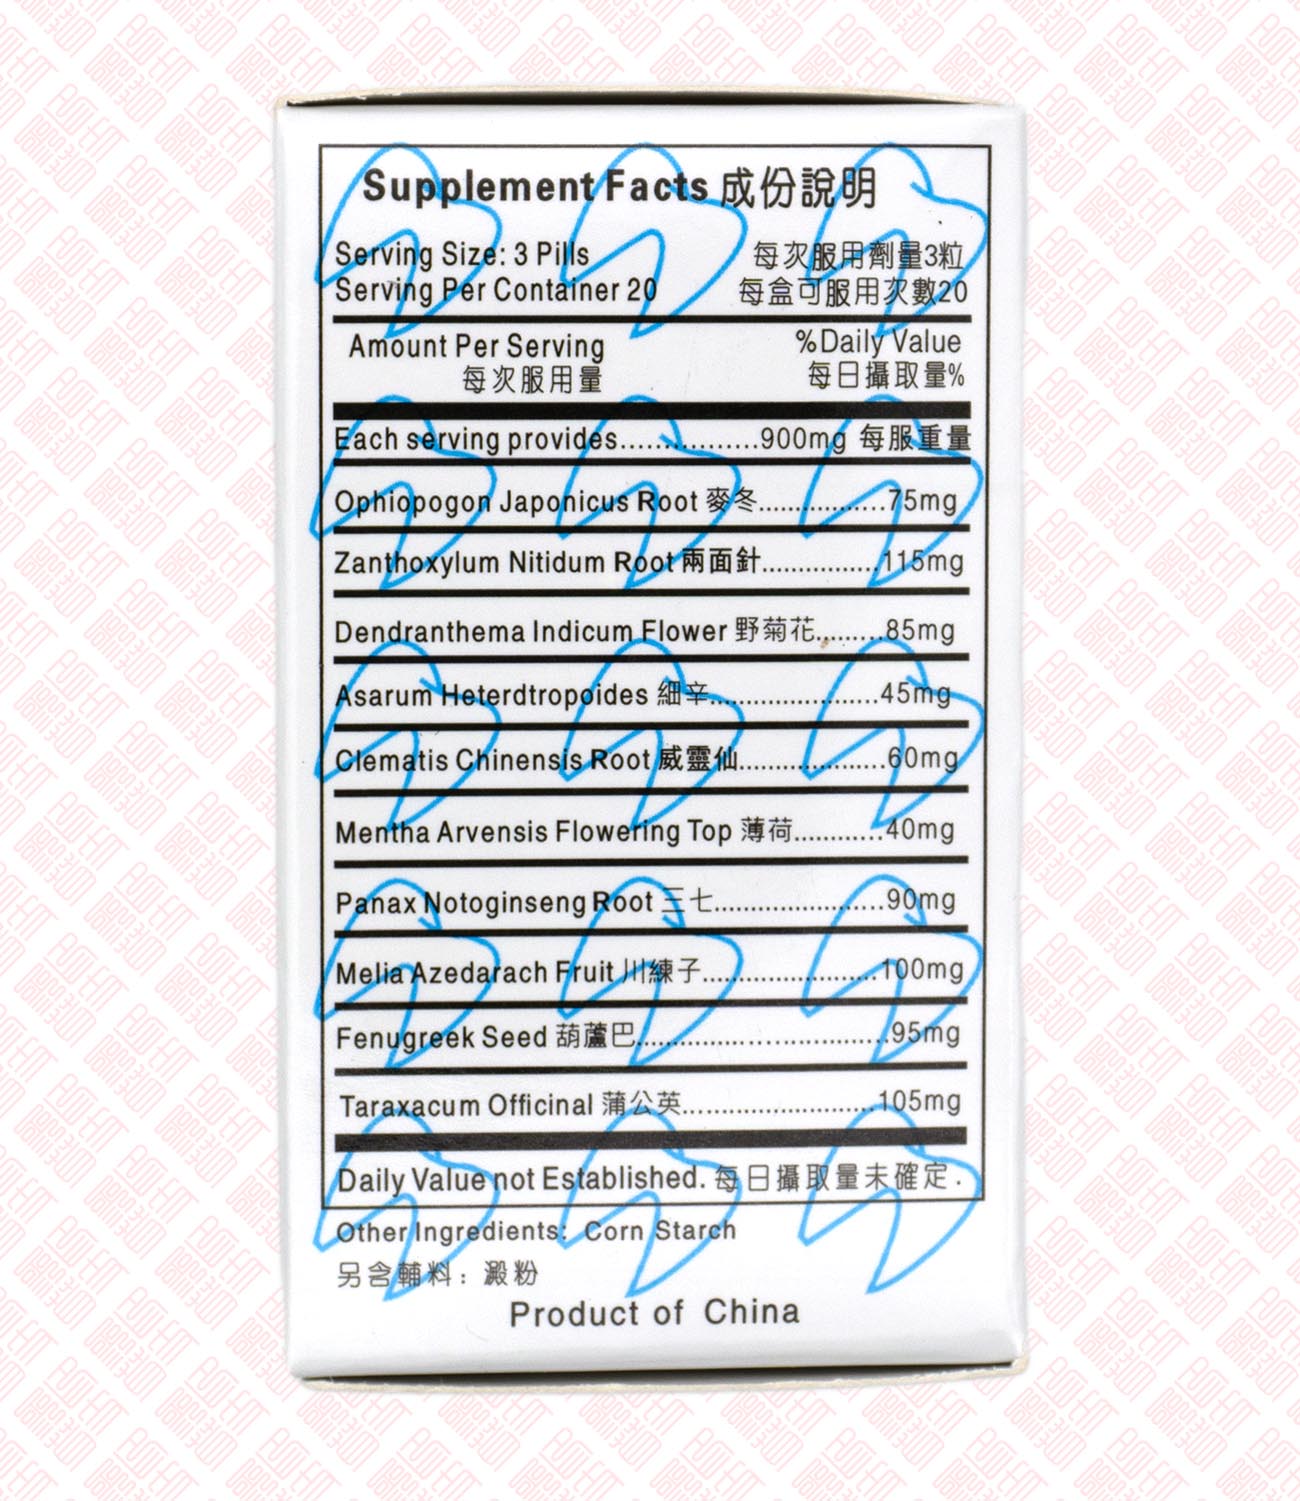 Supplement Facts 成份說明
Serving Size: 3 Pills 每次服用劑量3粒
Serving Per Container 20 每盒可服用次數20
Amount Per Serving %Daily Value
每次服用量 每日攝取量%
Each serving provides................900mg 每服重量
Ophiopogon Japonicus Root 麥冬.................75mg
Zanthoxylum Nitidum Root 兩面針................115mg
Dendranthema Indicum Flower 野菊花.........85mg
Asarum Heterdtropoides 細辛......................45mg
Clematis Chinensis Root 威靈仙...................60mg
Mentha Arvensis Flowering Top 薄荷............40mg
Panax Notoginseng Root 三七......................90mg
Melia Azedarach Fruit 川練子.......................100mg
Fenugreek Seed 葫蘆巴.................................95mg
Taraxacum Officinal 蒲公英.........................105mg
Daily Value not Established. 每日攝取量未確定.
Other Ingredients: Corn Starch
另含輔料: 澱粉
Product of China